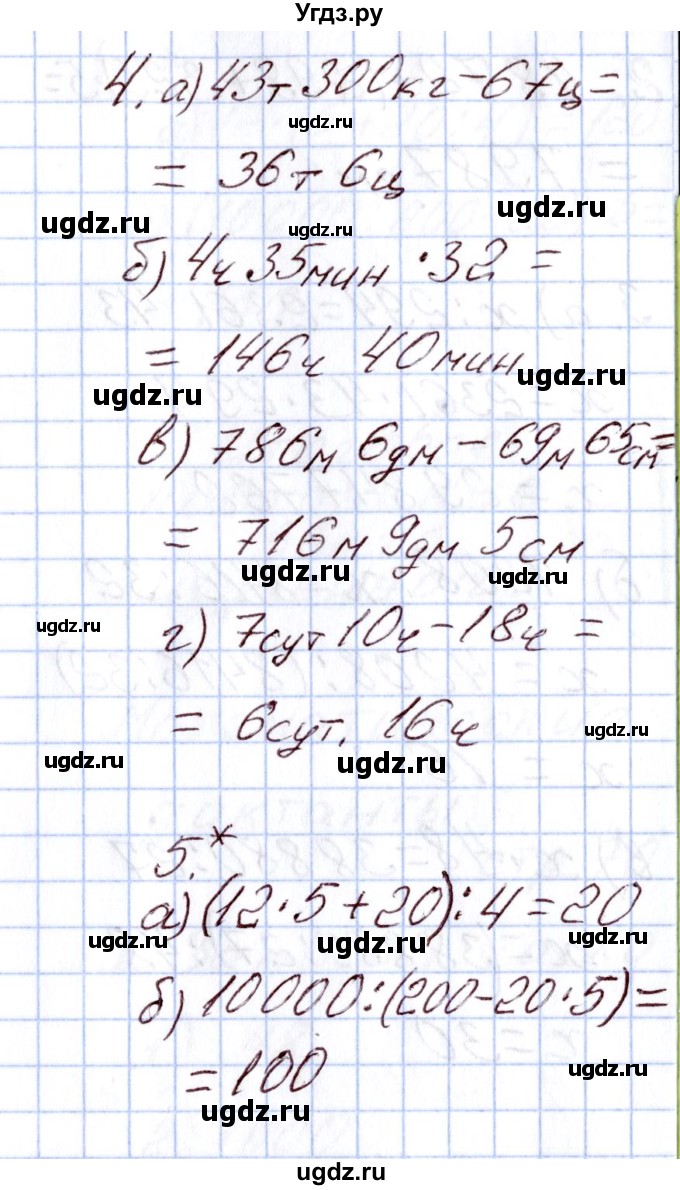 Угдз.ру
4. а) 43т 300кг - 67ц =
ugdz.ru
= 36т 6ц
ugdz.ru
ugdz.ru
ugdz.ru
б) 4ч 35мин · 32 =
= 146ч 40мин
ugdz.ru
ugdz.ru
в) 786м 6дм - 69м 65см =
= 716м 9дм 5см
ugdz.ru
ugdz.ru
ugdz.ru
г) 7сут 10ч - 18ч =
= 6сут. 16ч
ugdz.ru
ugdz.ru
ugdz.ru
5.*
а) (12·5+20):4=20
ugdz.ru
ugdz.ru
ugdz.ru
б) 10000:(200-20·5)=
= 100
ugdz.ru
ugdz.ru
ugdz.ru